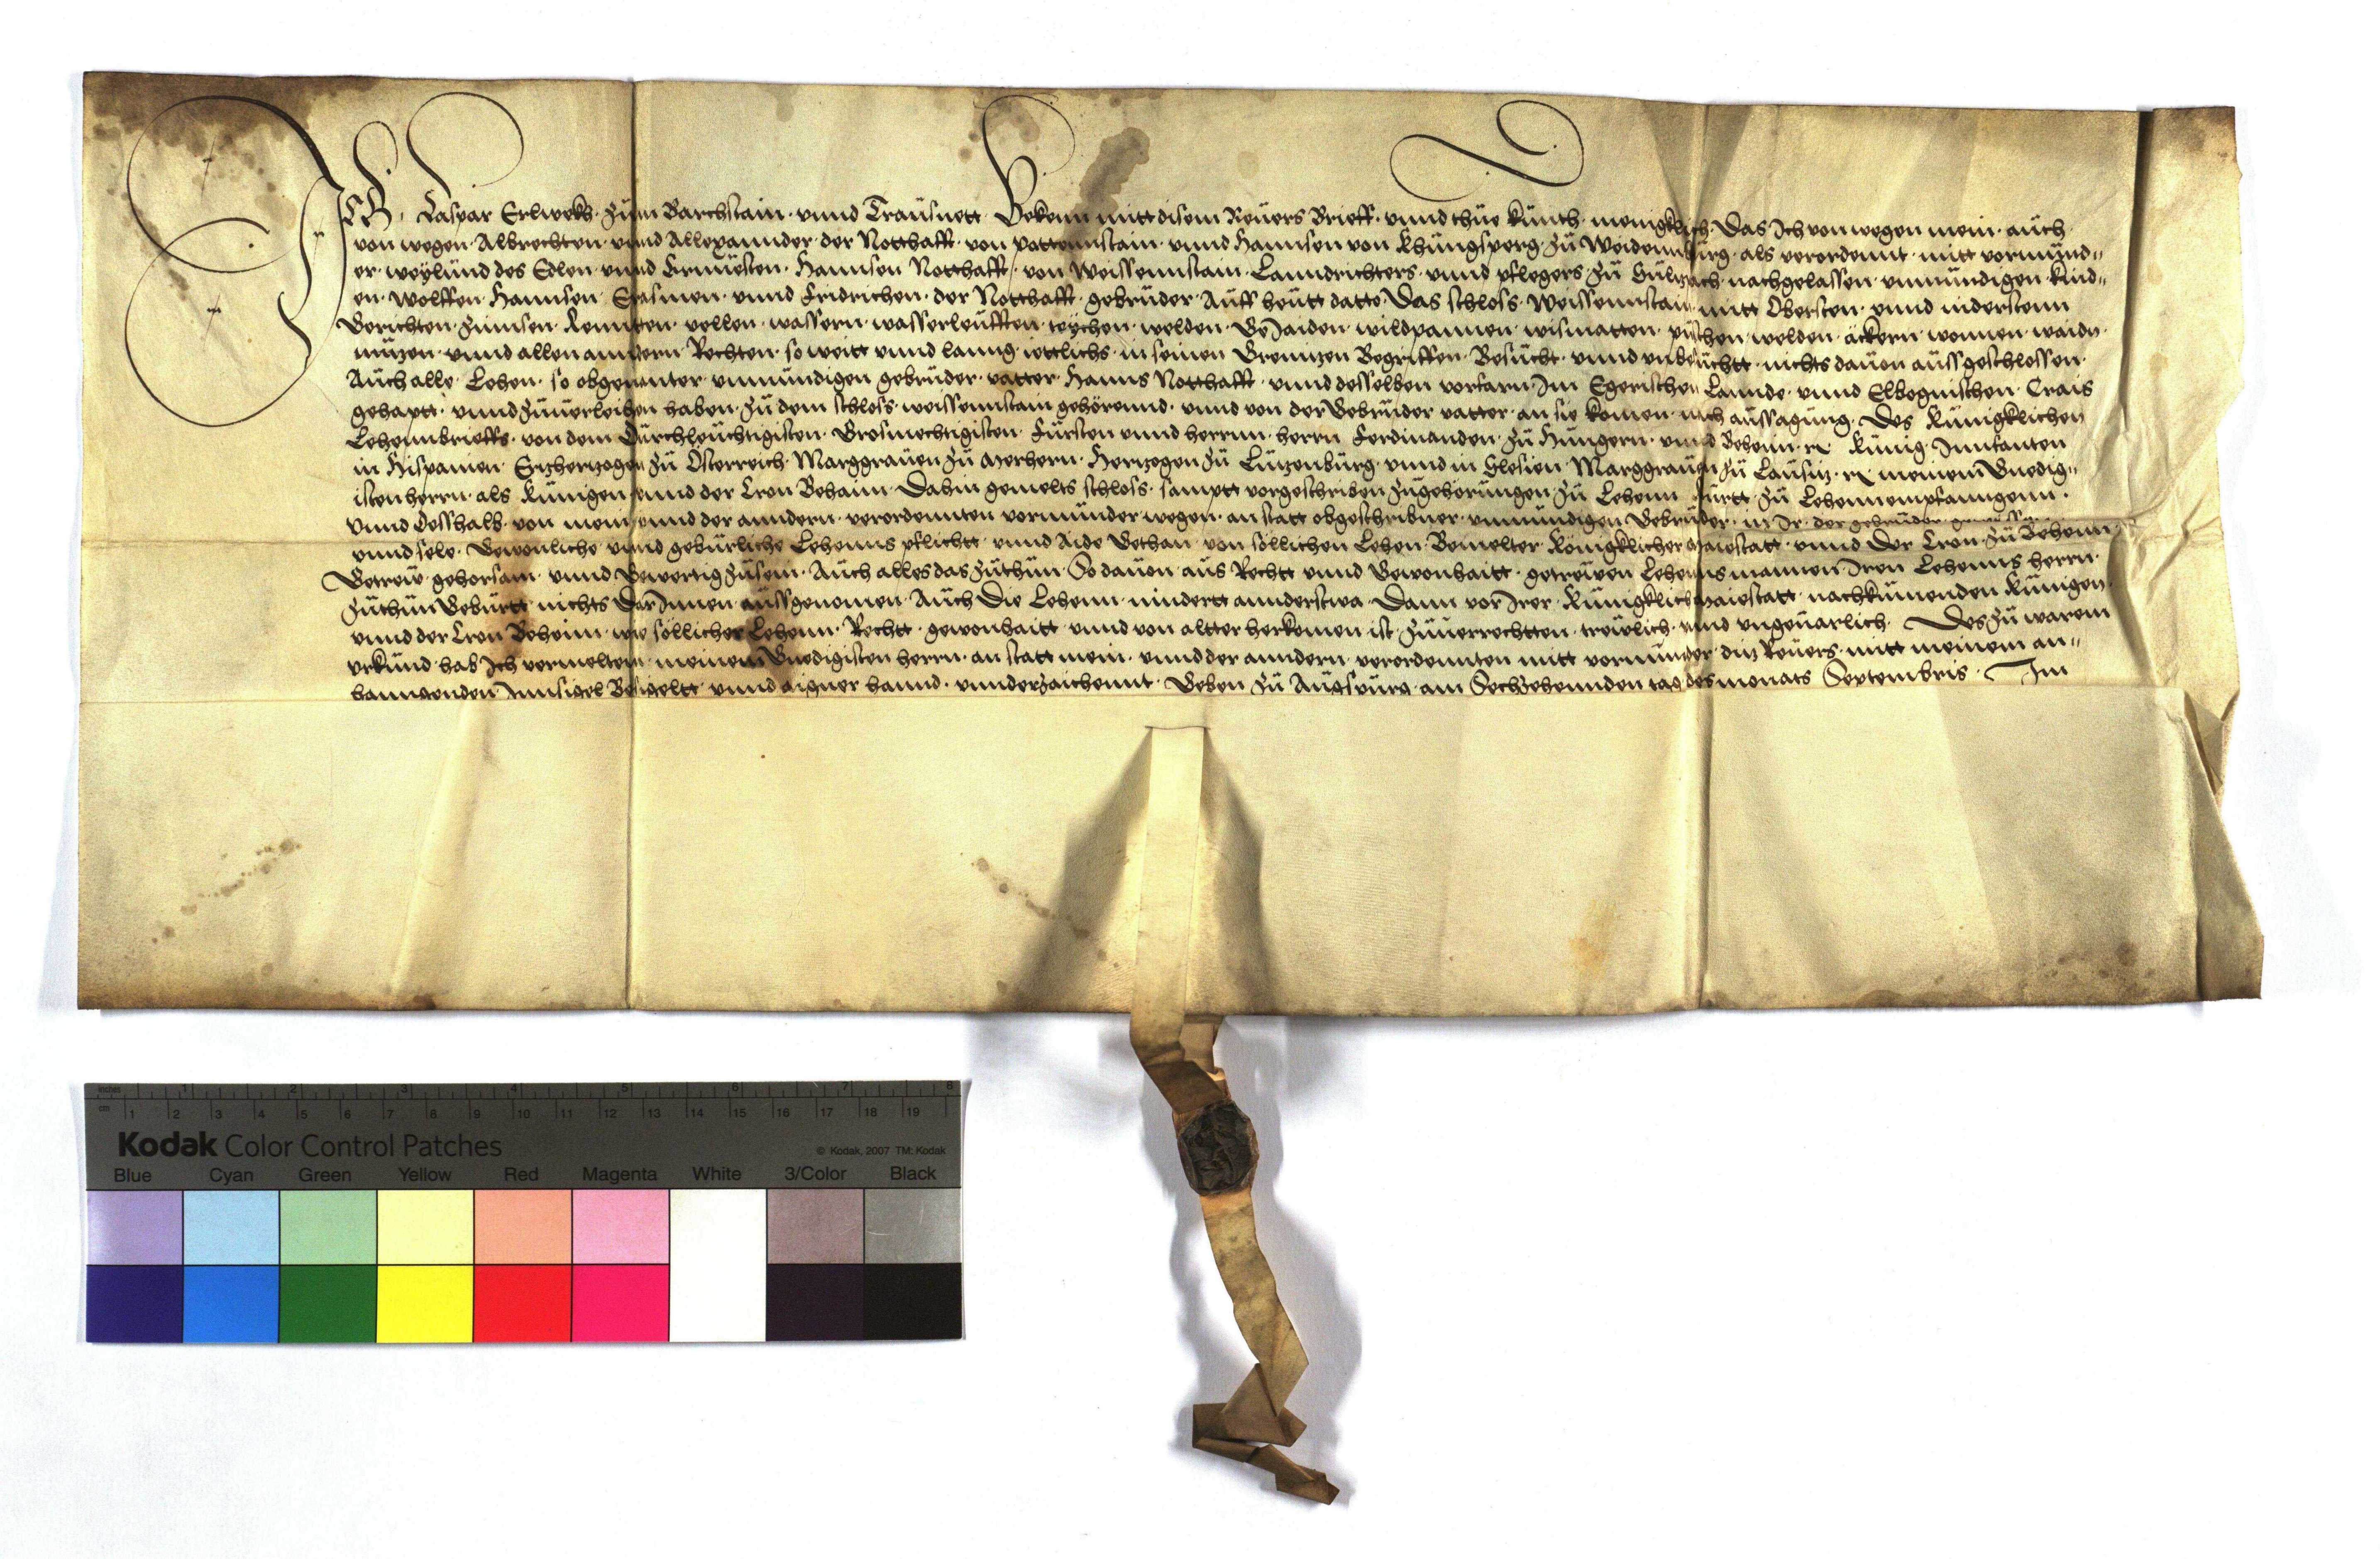 ICH Caspar Erlweckh zum Barchstain vnnd Trausnett Bekenn mitt disem Reuers Brieff vnnd thue kunth menigklich Das Ich von wegen mein auch
von wegen Albrechten vnnd Allexannder der Notthafft von vnnd Hannsen von Khungsperg zu Weidennburg als verordennt mitt vormund=
er weylund des Edlen vnnd Ernuesten Hannsen Notthafft von Weissennstain Lanndrichters vnnd pflegers zu Sultzbach nachgelassen vnmundigen kind=
en Wolffen Hannsen Erasmen vnnd Fridrichen der Notthafft gebruder Auff heutt datto Das schloss Weissennstain mitt Obersten vnnd niderstenn
Gerichten Zinnsen Rennten vellen wassern wasserleufften teychen welden Gejaiden wildpannen wismatten puschen welden äckern wonnen waidn
nutzen vnnd allen anndern Rechten so weitt vnnd lanng iettlichs in seinen Grennitzen Begriffen Besucht vnnd vnbesuchtt nichts dauon aussgeschlossen
Auch alle Lehen so obgenanter vnmundigen gebruder vatter Hanns Notthafft vnnd desselben vorfarn Im Egerischen Lannde vnnd Elbognischen Crais
gehaptt vnnd zuuerleihen haben zu dem schloss weissennstain gehörennd vnnd von der Gebruder vatter an sie komen nach aussagung Des Kunigklichen
Lehennbrieffs von dem Durchleuchtigisten Grosmechtigisten Fursten vnnd herrnn herrn Ferdinanden zu Hungern vnnd Behenn rc Kunig Innfanten
in Hispanien Ertzhertzogen zu Osterreich Marggrauen zu Merhern Hertzogen zu Lutzenburg vnnd in Slesien Marggrauen zu Lausitz rc meinem Gnedig=
isten herrn als Kunigen vnnd der Cron Behaim Dahin gemelts schloss samptt vorgeschriben zugehörungen zu Lehenn rurtt zu Lehennempfanngenn
vnnd Desshalb von mein vnnd der anndern verordennten vormunder wegen an statt obgeschribner vnmundigen Gebruder in Ir der gebruder gewissen
vnnd sele Gewonliche vnnd geburliche Lehenns pflichtt vnnd Aide Gethan von söllichen Lehen Bemelter Königklicher Maiestatt vnnd Der Cron zu Behenn
Getrew gehorsam vnnd Gewertig zusein Auch alles das zuthun So dauon aus Rechtt vnnd Gewonhaitt getrewen Lehenns mannen Iren Lehenns herrn
zuthun Geburtt nichts Darinnen aussgenomen Auch Die Lehenn nindertt annderstwa Dann vor Irer Kunigklich Maiestatt nachkumenden Kunigen
vnnd der Cron Beheim wie söllicher Lehenn Rechtt gewonhaitt vnnd von altter herkomen ist zuuerrechtten trewlich vnnd vngeuarlich Des zu warem
vrkund hab Ich vermeltem meinem Gnedigisten herrn an statt mein vnnd der anndern verordennten mitt vormunder ditz Reuers mitt meinem an=
hanngenden Innsigel Besigeltt vnnd aigner hannd vnnderzaichennt Geben zu Augspurg am Sechzehennden tag des monats Septembris Im
inches 1 2 3 4 5 6 7 8
cm 1 2 3 4 5 6 7 8 9 10 11 12 13 14 15 16 17 18 19
Kodak Color Control Patches
© Kodak, 2007 TM: Kodak
Blue Cyan Green Yellow Red Magenta White 3/Color Black